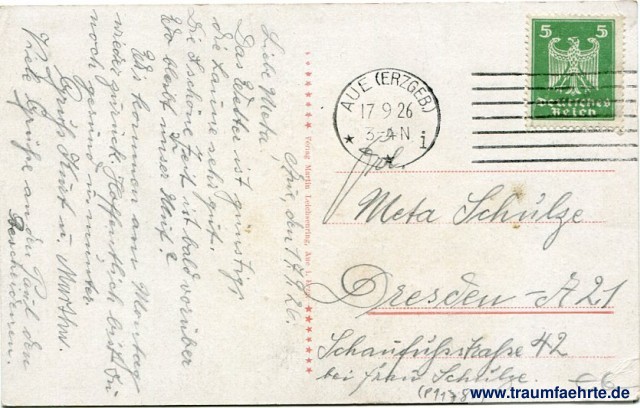 5 5
Deutsches
Reich
AUE (ERZGEB)
17 9 26
3-4 N
i
Aue, den 17.9.26.
Liebe Meta,
Das Wetter ist günstig,
die Laune sehr gut.
Die schöne Zeit ist bald vorüber
Wo bleibt unser Mut?
Wir kommen am Montag
wieder zurück. Hoffentlich bist du
noch gesund u. munter.
Gruß Kurt u. Martha.
Viele Grüße an den Paul den
Bescheidenen.
Verlag Martin Aue i. Erzg.
Frl.
Meta Schulze
Dresden-A 21
Schaufußstraße 42
bei Frau Schulze.
www.traumfaehrte.de